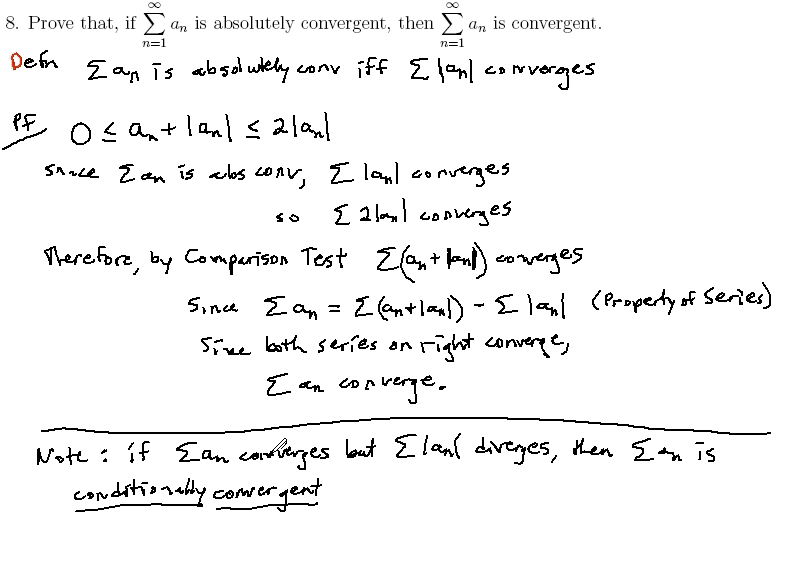 8. Prove that, if ∞∑n=1 aₙ is absolutely convergent, then ∞∑n=1 aₙ is convergent.
Defn Σan is absolutely conv iff Σ|an| converges
Pf 0 ≤ an + |an| ≤ 2|an|
Since Σan is abs conv, Σ|an| converges
so Σ2|an| converges
Therefore, by Comparison Test Σ(an+|an|) converges
Since Σan = Σ(an+|an|) - Σ|an| (Property of Series)
Since both series on right converge,
Σan converge.
Note : if Σan converges but Σ|an| diverges, then Σan is
conditionally convergent